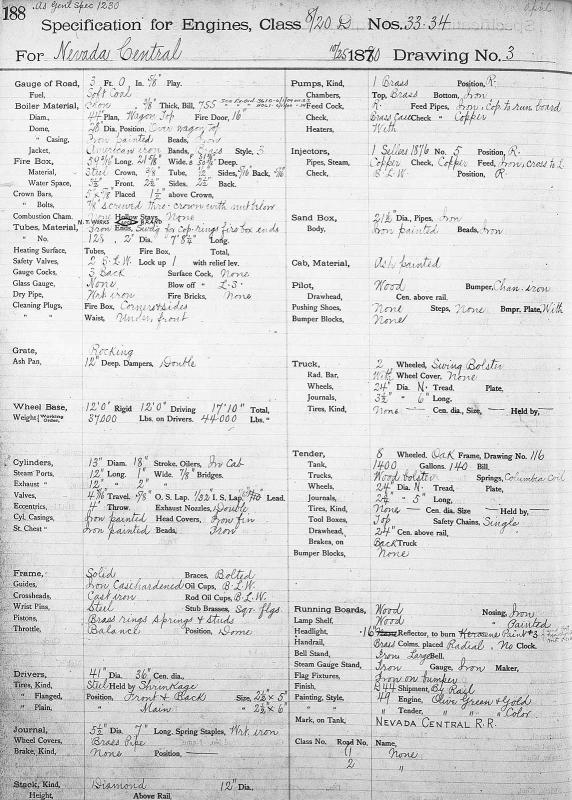 188
As Gent Spec 1230
Specification for Engines, Class 8/20 D Nos. 33.34
For Nevada Central 10/25 1880 Drawing No. 3
Gauge of Road, 3 Ft. 0 In. 5/8" Play.
Fuel, Soft Coal
Boiler Material, Iron 3/8" Thick, Bill, 755
Diam, 44" Plan, Wagon Top Fire Door, 16"
Dome, Dia. Position, Over wagon top
" Casing, Iron painted Beads, Iron
Jacket, American iron Bands, Brass Style, 3
Fire Box, Long. Wide. Deep.
Material, Steel Crown, 3/8" Tube, 1/2" Sides, 5/16" Back, 5/16"
Water Space, Front. Sides. Back.
Crown Bars, Placed 1 1/2" above Crown,
" Bolts, 7/8" screwed thro- crown with nut below
Combustion Cham. None Hollow Stays, None
Tubes, Material, Iron Ends, Swdg for cop-rings fire box ends
" No. 2" Dia. Long.
Heating Surface, Tubes, Fire Box, Total,
Safety Valves, 2 B.L.W. Lock up 1 with relief lev.
Gauge Cocks, 3 back Surface Cock, None
Glass Gauge, None Blow off " L.S.
Dry Pipe, Wrt iron Fire Bricks, None
Cleaning Plugs, Fire Box, Corners & sides
Waist, Under front
Grate, Rocking
Ash Pan, 12" Deep. Dampers, Double
Wheel Base, 12'0" Rigid 12'0" Driving 17'10" Total,
Weight, (Working Order,) 37000 Lbs. on Drivers. 44000 Lbs. "
Cylinders, 13" Diam. 18" Stroke. Oilers, In Cab
Steam Ports, 12" Long. 1" Wide. 7/8" Bridges.
Exhaust " 12" " 2" "
Valves, 4 5/16" Travel. 5/8" O. S. Lap. 1/32 I. S. Lap. Lead.
Eccentrics, 4" Throw. Exhaust Nozzles, Double
Cyl. Casings, Iron painted Head Covers, Iron fin
St. Chest " Iron painted Beads, Iron
Frame, Solid Braces, Bolted
Guides, Iron Casehardened Oil Cups, B.L.W.
Crossheads, Cast iron Rod Oil Cups, B.L.W.
Wrist Pins, Steel Stub Brasses, Sqr flgs
Pistons, Brass rings Springs & studs
Throttle, Balance Position, Dome
Drivers, 41" Dia. 36" Cen. dia.,
Tires, Kind, Steel Held by Shrinkage
" Flanged, Position, Front & Back Size, 2 1/2" x 5"
" Plain, " Main " 2 1/2" x 6"
Journal, 5 1/2" Dia. 7" Long. Spring Staples, Wrt iron
Wheel Covers, Brass Pipe
Brake, Kind, None Position,
Stack, Kind, Diamond 12" Dia.,
Height, Above Rail,
Pumps, Kind, 1 Brass Position, R.
Chambers, Top, Brass Bottom, Iron
Feed Cock, R. Feed Pipes, Iron. Cop to run board
Check, Brass Case Check " Copper
Heaters, With
Injectors, 1 Sellers 1876 No. 5 Position, R.
Pipes, Steam, Copper Check, Copper Feed, Iron, cross to L.
Check, B.L.W. Position, R.
Sand Box, 21 1/2" Dia., Pipes, Iron
Body, Iron painted Beads, Iron
Cab, Material, Ash painted
Pilot, Wood Bumper, Chan. iron
Drawhead, Cen. above rail.
Pushing Shoes, None Steps, None Bmpr. Plate, With
Bumper Blocks, None
Truck, 2 Wheeled, Swing Bolster
Rad. Bar, With Wheel Cover, None
Wheels, 24" Dia. N. Tread. Plate,
Journals, 3 1/2" " 6" Long.
Tires, Kind, None Cen. dia., Size, Held by,
Tender, 8 Wheeled, Oak Frame, Drawing No. 116
Tank, 1400 Gallons. 140 Bill,
Trucks, Wood bolster Springs, Columbia Coil
Wheels, 24" Dia. N. Tread, Plate,
Journals, 2 3/4" " 5" Long,
Tires, Kind, None Cen. dia. Size Held by
Tool Boxes, Top Safety Chains, Single
Drawhead, 24" Cen. above rail,
Brakes, on Back Truck
Bumper Blocks, None
Running Boards, Wood Nosing, Iron
Lamp Shelf, Wood " Painted
Headlight, 16" Reflector, to burn Kerosene Paint #3
Handrail, Brass Colms. placed Radial, No Clock.
Bell Stand, Iron Large Bell.
Steam Gauge Stand, Iron Gauge, Iron Maker,
Flag Fixtures, Iron on bumper
Finish, B 44 Shipment, By Rail
Painting, Style, 49 Engine, Olive Green & Gold
" " Tender, " " " Color
Mark, on Tank, NEVADA CENTRAL R.R.
Class No. Road No. Name,
1 None
2 "